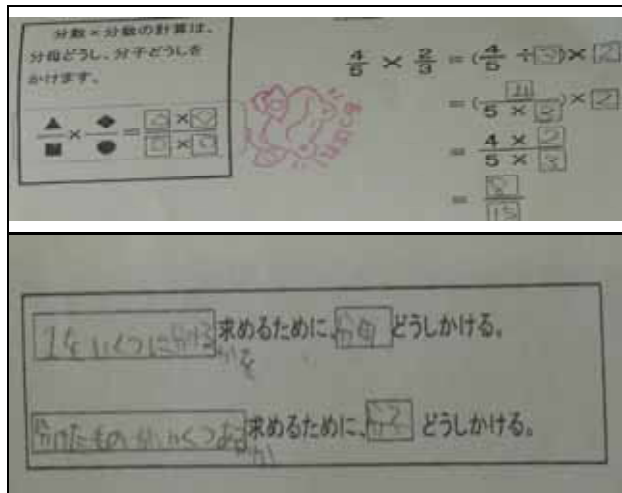 分数×分数の計算は、
分母どうし、分子どうしを
かけます。
▲/■ × ◆/● = △×◇/□×○
4/5 × 2/3 = (4/5 ÷ 3) × 2
= (4/5 × 3) × 2
= 4 × 2/5 × 3
= 8/15
1をいくつに分ける 求めるために、分母 どうしかける。
かを
分けたものがいくつある 求めるために、分子 どうしかける。
か